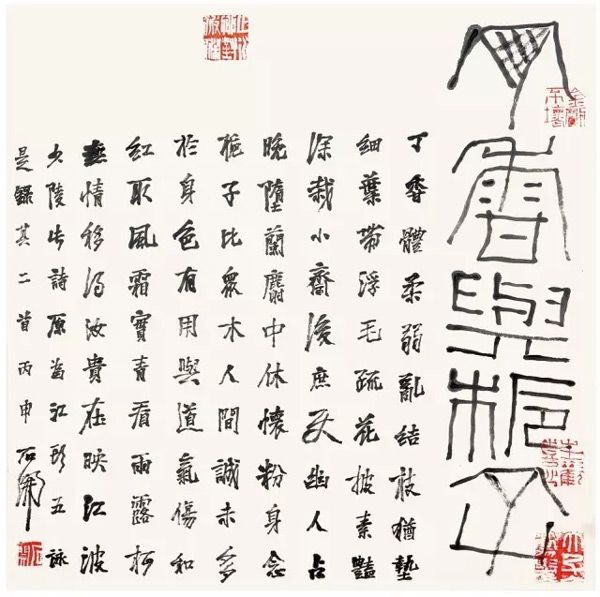 丁香與梔子
丁香體柔弱亂結枝猶墊
細葉帶浮毛疏花披素豔
深栽小齋後庶使幽人占
晚墮蘭麝中休懷粉身念
梔子比眾木人間誠未多
於身色有用與道氣傷和
紅取風霜實青看雨露柯
無情移得汝貴在映江波
少陵此詩原當江頭五詠
是錄其二首丙申石開